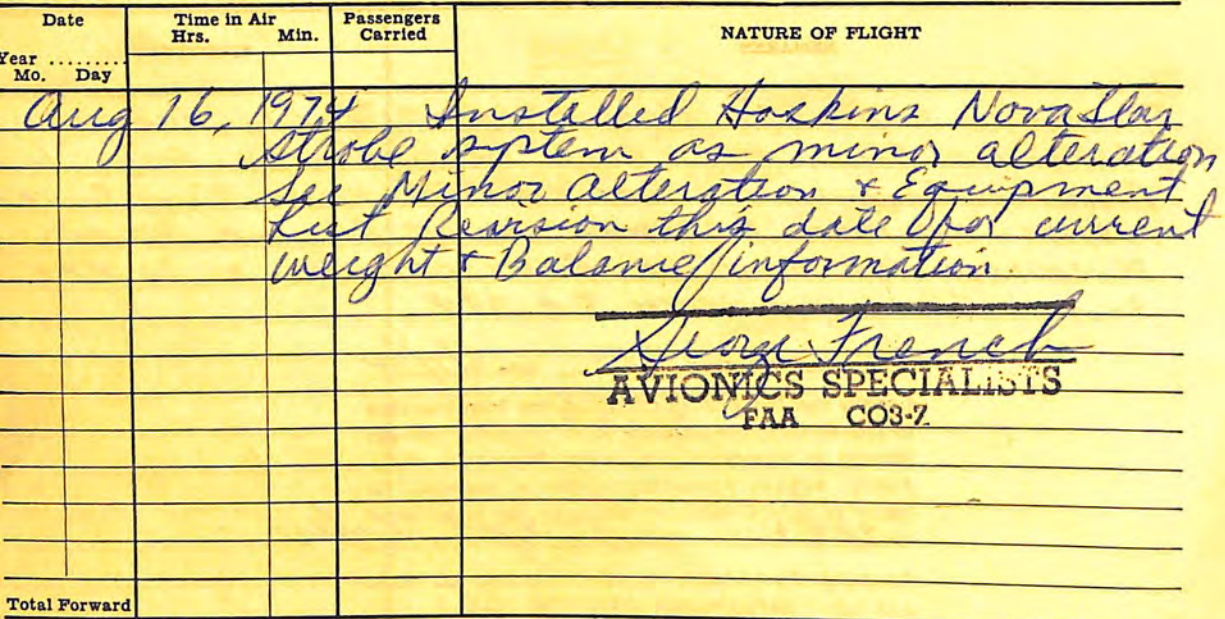 Date Time in Air Passengers Carried NATURE OF FLIGHT
Hrs. Min.
Year ........
Mo. Day
Aug 16, 1974 Installed Hoskins NovaStar
strobe system as minor alteration
See Minor alteration & Equipment
List Revision this date for current
weight & Balance information.
George French
AVIONICS SPECIALISTS
FAA CO3-7
Total Forward